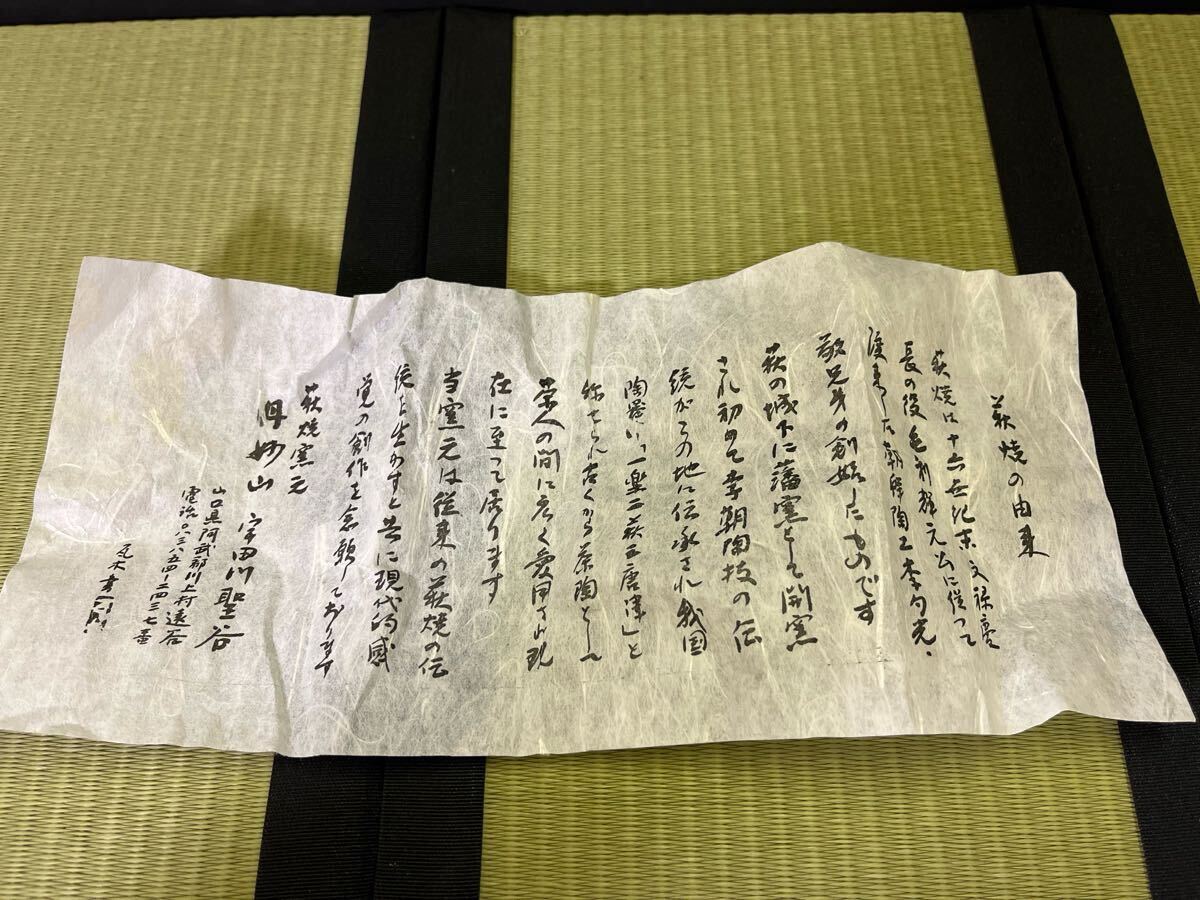 萩焼の由来
萩焼は十六世紀末文禄慶
長の役毛利輝元公に従って
渡来した朝鮮陶工李勺光・
敬兄弟の創始したものです
萩の城下に藩窯として開窯
され初めて李朝陶技の伝
統がこの地に伝承され我国
陶器い「一楽二萩三唐津」と
称せられ古くから茶陶として
茶人の間に広く愛用され現
在に至って居ります
当窯元は従来の萩焼の伝
統を生かすと共に現代的感
覚の創作を念願しております
萩焼窯元
丹妙山 宇田川聖谷
山口県阿武郡川上村遠谷
電話〇八三八五四ー二四三七番